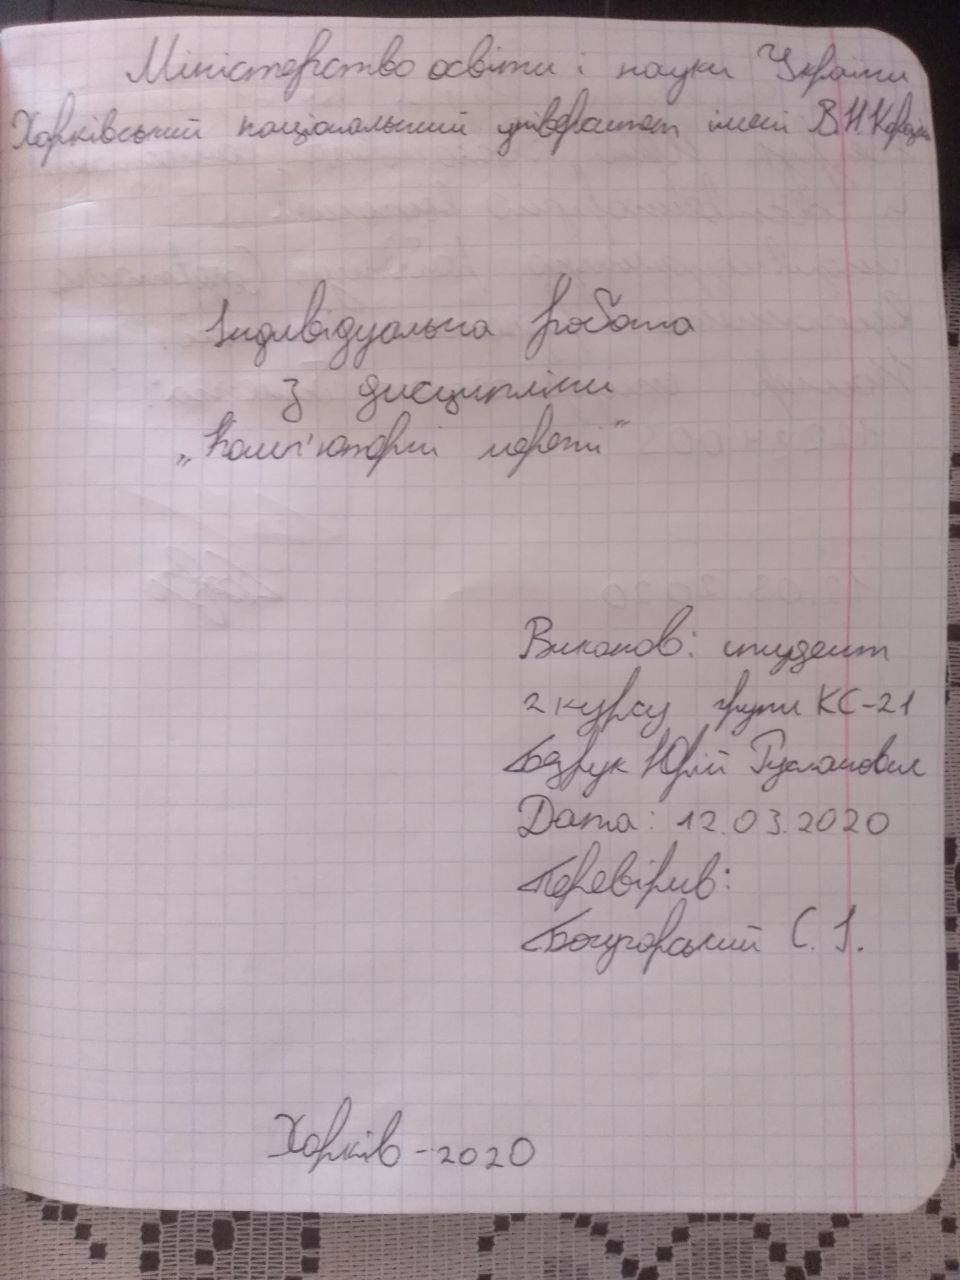 Міністерство освіти і науки України
Харківський національний університет імені В Н Каразін
Індивідуальна робота
з дисципліни
„Комп'ютерні мережі"
Виконав: студент
2 курсу групи КС-21
Юрій Русланович
Дата: 12.03.2020
Перевірив:
С. І.
Харків - 2020